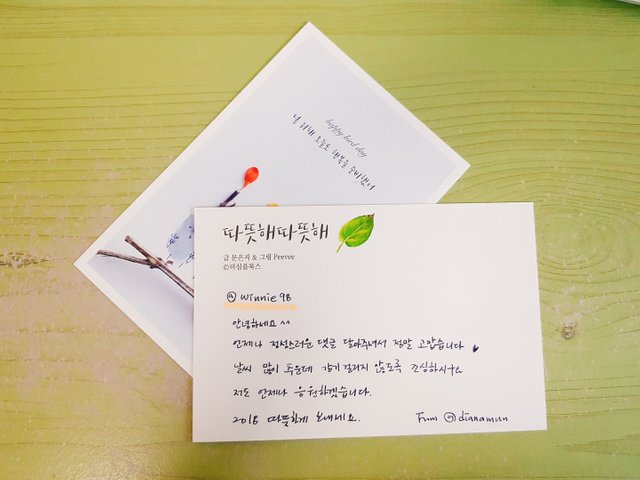 happy bird day
널 위해 오늘도 행복을 준비했어
따뜻해따뜻해
글 문은지 & 그림 Peevee
©더심플북스
@ winnie98
안녕하세요 ^^
언제나 정성스러운 댓글 달아주셔서 정말 고맙습니다 ♥
날씨 많이 추운데 감기 걸리지 않도록 조심하시구요
저도 언제나 응원하겠습니다.
2018 따뜻하게 보내세요.
From @dianamun